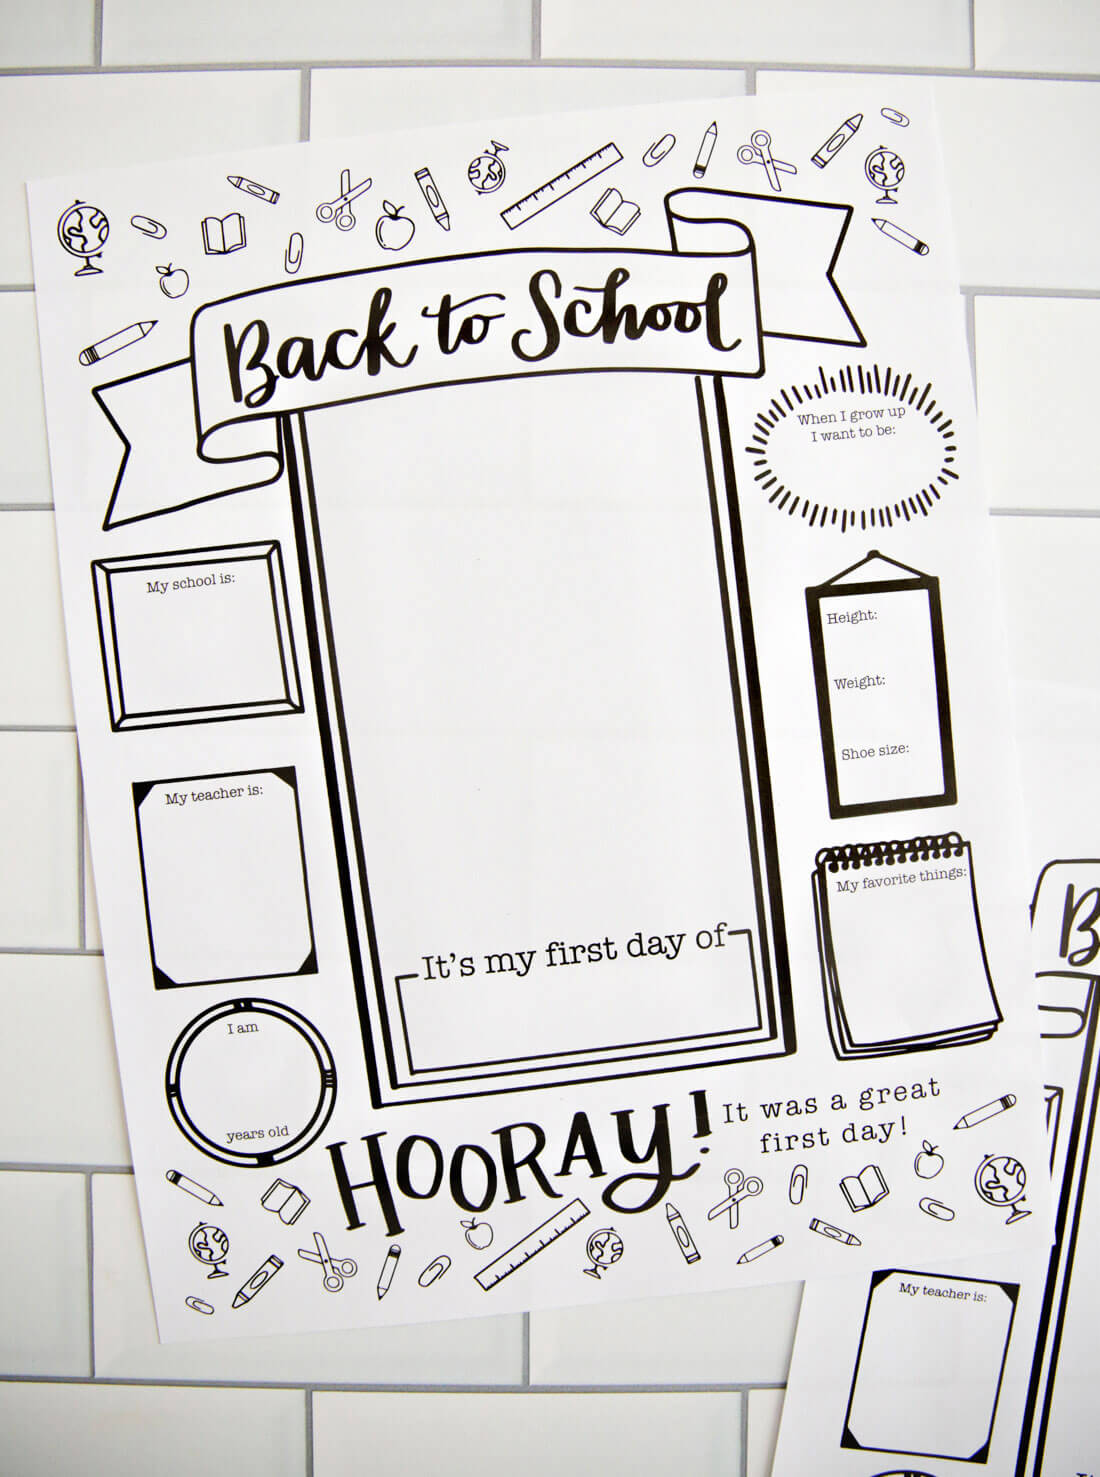 Back to School
When I grow up
I want to be:
My school is:
Height:
Weight:
Shoe size:
My teacher is:
My favorite things:
It's my first day of
I am
years old
HOORAY!
It was a great
first day!
B
My teacher is: